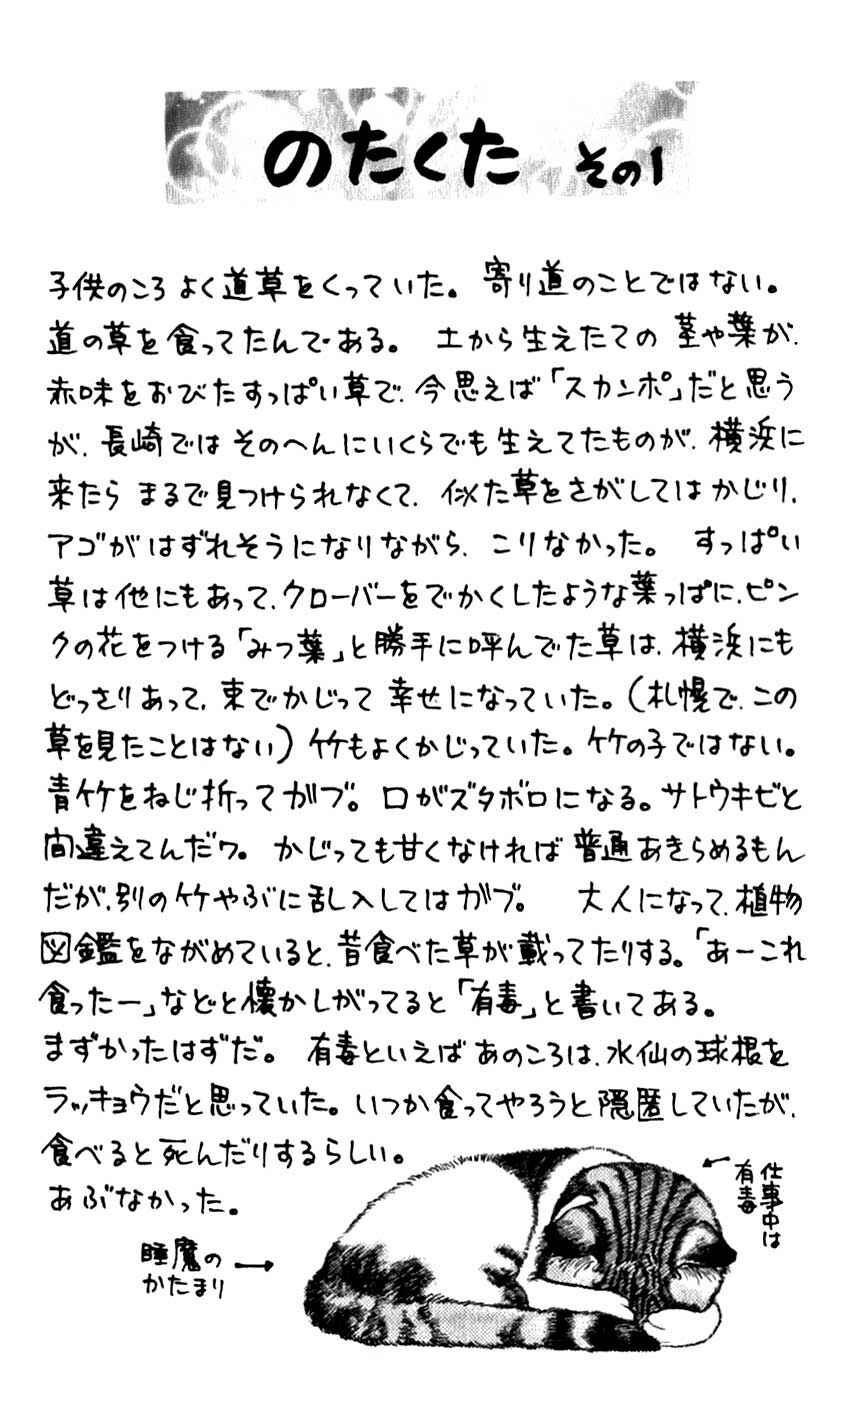 のたくた その1
子供のころ よく道草をくっていた。 寄り道のことではない。
道の草を食ってたんである。 土から生えたての 茎や葉が、
赤味をおびたすっぱい草で、今思えば「スカンポ」だと思う
が、長崎では そのへんにいくらでも生えてたものが、横浜に
来たら まるで見つけられなくて、 似た草をさがしてはかじり、
アゴがはずれそうになりながら、こりなかった。 すっぱい
草は他にもあって、クローバーをでかくしたような葉っぱに、ピン
クの花をつける「みつ葉」と勝手に呼んでた草は、横浜にも
どっさりあって、束でかじって 幸せになっていた。(札幌で、この
草を見たことはない) 竹もよくかじっていた。竹の子ではない。
青竹をねじ折ってガブ。口がズタボロになる。サトウキビと
間違えてんだワ。 かじっても甘くなければ 普通あきらめるもん
だが、別の竹やぶに乱入してはガブ。 大人になって、植物
図鑑をながめていると、昔食べた草が載ってたりする。「あーこれ
食ったー」などと懐かしがってると「有毒」と書いてある。
まずかったはずだ。 有毒といえば あのころは、水仙の球根を
ラッキョウだと思っていた。いつか食ってやろうと隠匿していたが、
食べると死んだりするらしい。
あぶなかった。
仕事中は
有毒
睡魔の
かたまり